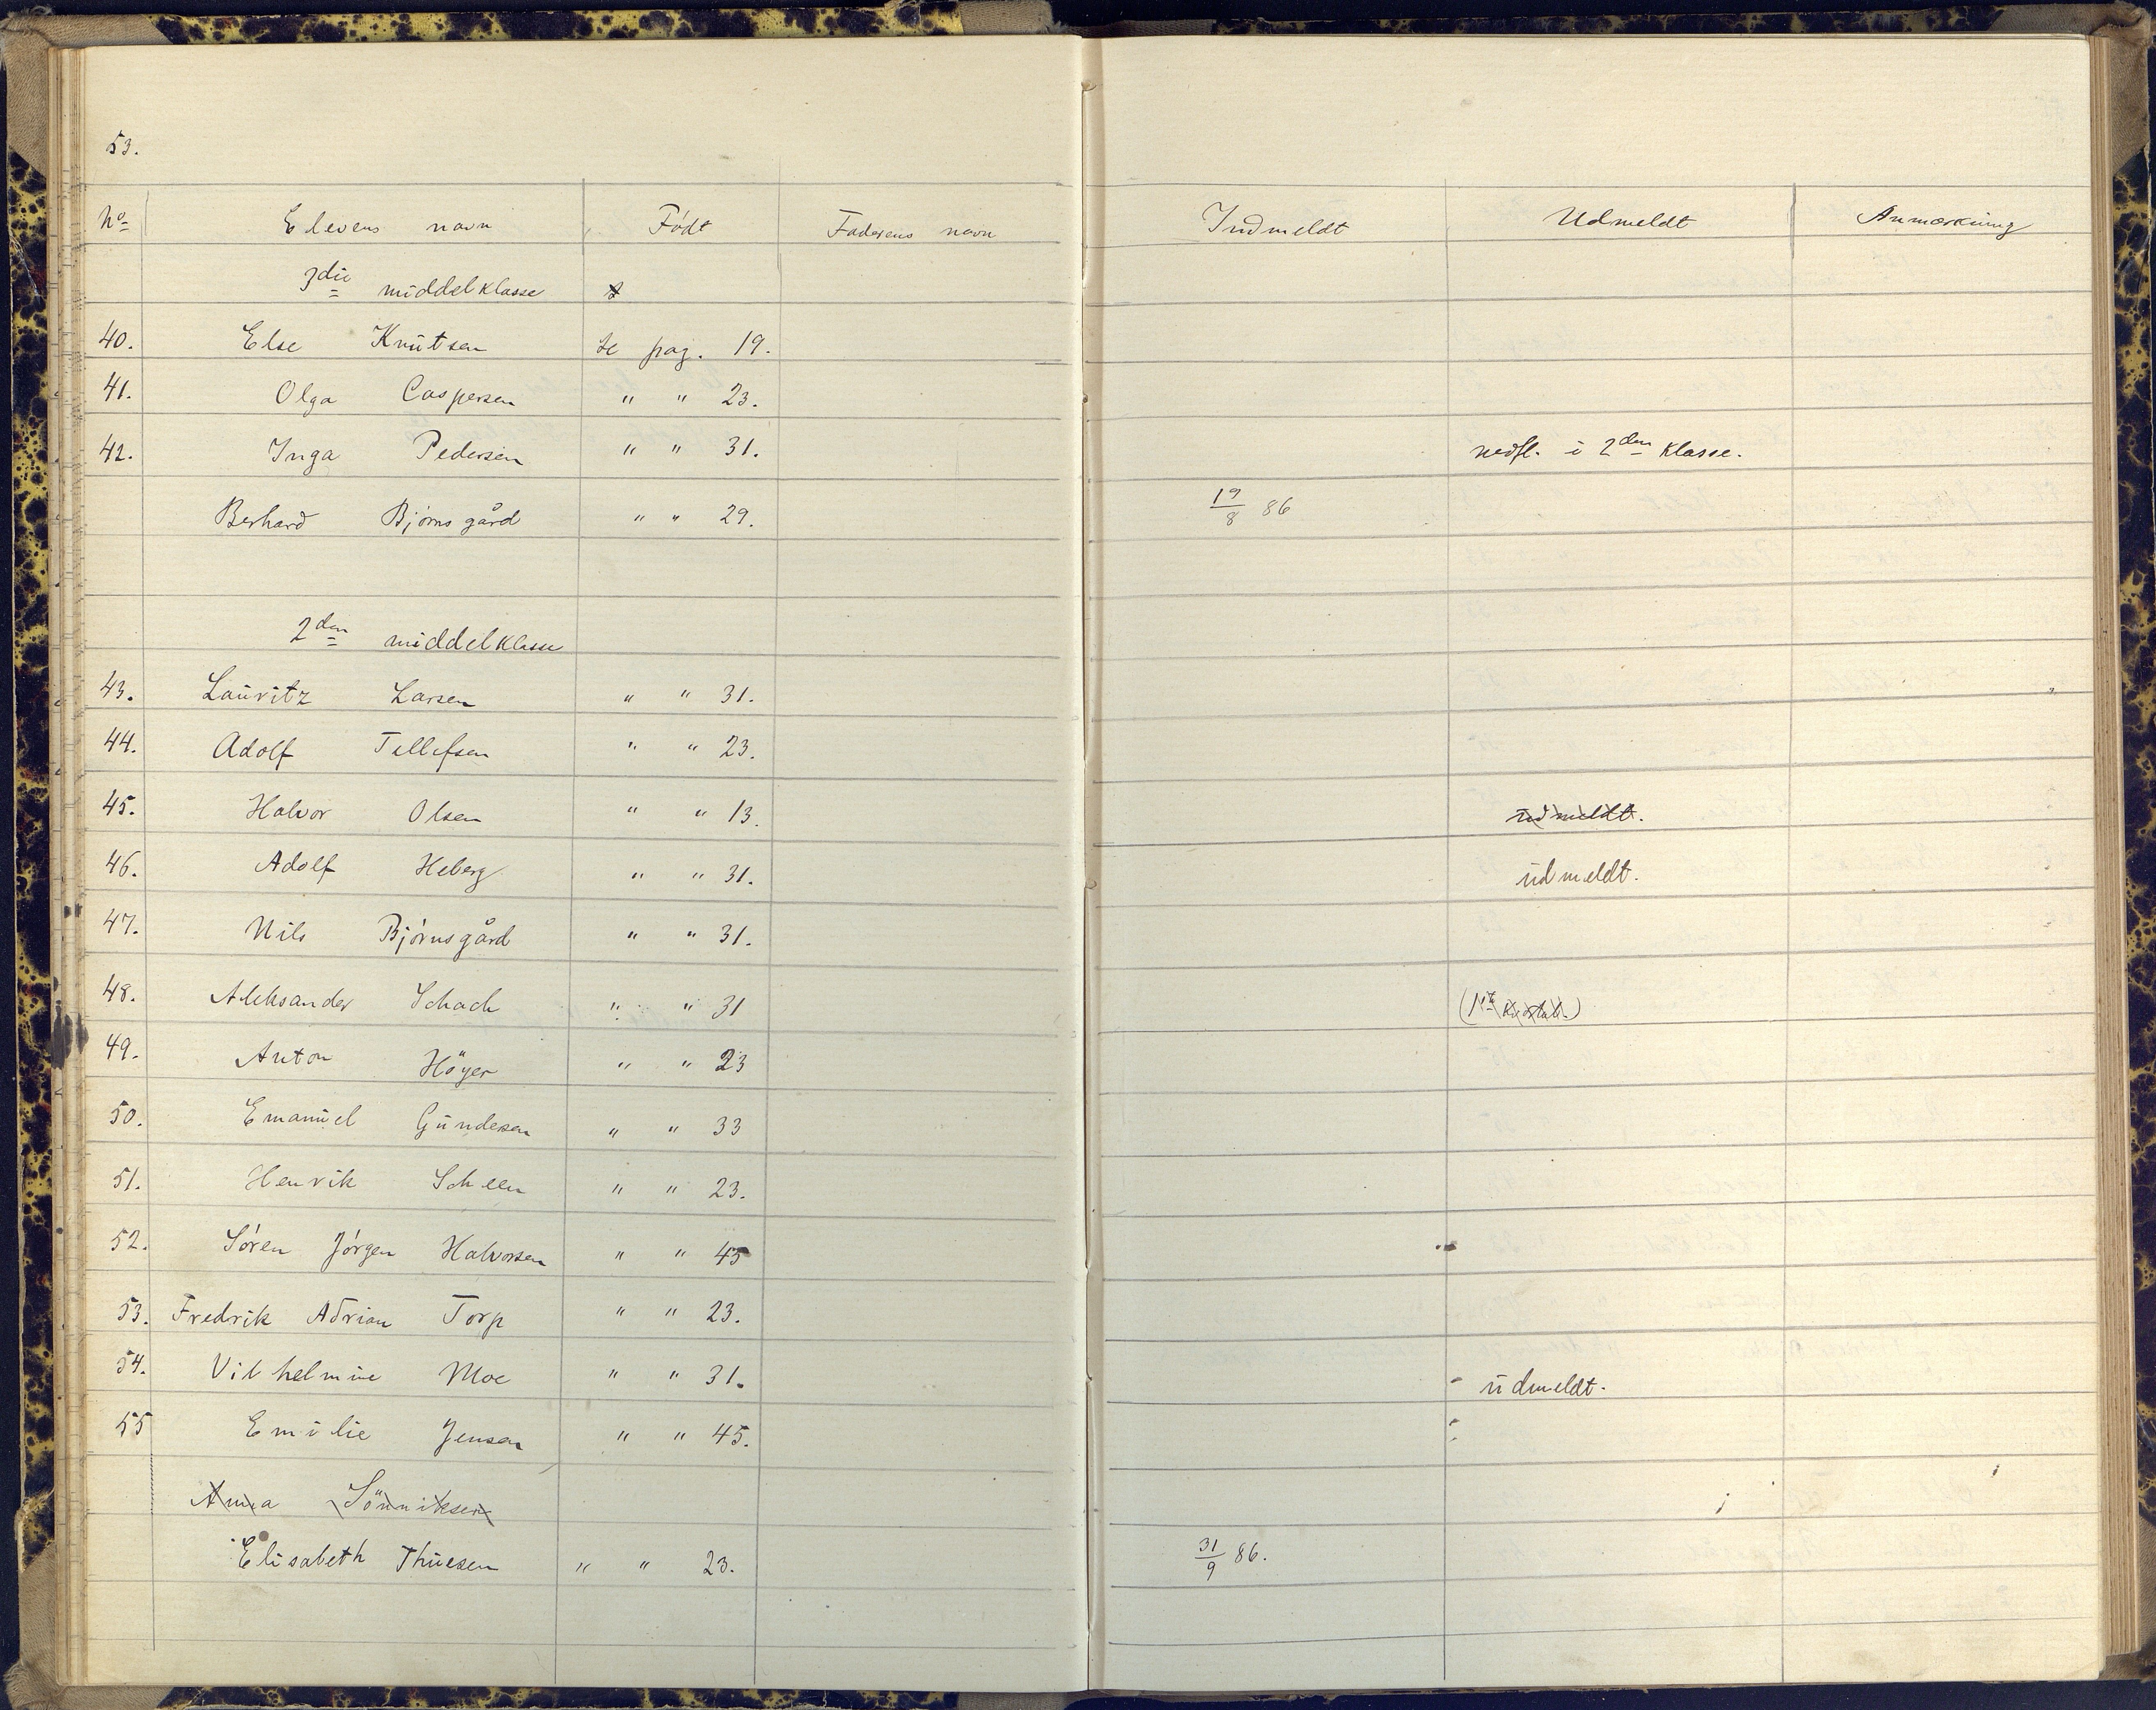 53.
No Elevens navn Født Faderens navn Indmeldt Udmeldt Anmærkning
3die middelklasse
40. Else Knutsen se pag. 19.
41. Olga Caspersen " " 23.
42. Inga Pedersen " " 31. nedfl. i 2den klasse.
Berhard Bjørnsgård " " 29. 19/8 86
2den middelklasse
43. Lauritz Larsen " " 31.
44. Adolf Tellefsen " " 23.
45. Halvor Olsen " " 13. udmeldt.
46. Adolf Heberg " " 31. udmeldt.
47. Nils Bjørnsgård " " 31.
48. Aleksander Schach " " 31
49. Anton Höyer " " 23
50. Emanuel Gundersen " " 33
51. Henrik Scheen " " 23.
52. Sören Jörgen Halvorsen " " 45
53. Fredrik Adrian Torp " " 23.
54. Vilhelmine Moe " " 31. udmeldt.
55 Emilie Jensen " " 45.
Anna Sönniksen
Elisabeth Thuesen " " 23. 31/9 86.